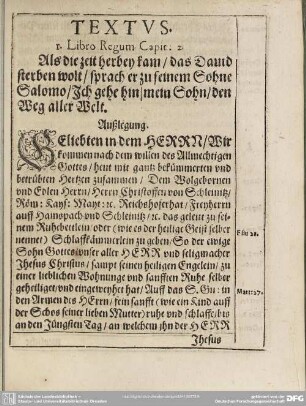 TEXTVS.
1. Libro Regum Capit. 2.
Als die zeit herbey kam / das Dauid
sterben wolt / sprach er zu seinem Sohne
Salomo / Ich gehe hin / mein Sohn / den
Weg aller Welt.
Außlegung.
GEliebten in dem HERRN / Wir
kommen nach dem willen des Allmechtigen
Gottes / heut mit gantz bekümmerten vnd
betrübten Hertzen zusammen / Dem Wolgebornen
vnd Edlen Herrn / Herrn Christoffen von Schleinitz /
Röm: Kays: Mayt: ꝛc. Reichshoferhat / Freyherrn
auff Hainspach vnd Schleinitz / ꝛc. das geleit zu sei-
nem Ruhebetlein / oder ( wie es der heilige Geist selber
nennet ) Schlaffkämmerlein zu geben / So der ewige
Sohn Gottes / vnser aller HERR vnd seligmacher
Jhesus Christus / sampt seinen heiligen Engelein / zu
einer lieblichen Wohnunge vnd sanfften Ruhe selber
geheiliget / vnd eingeweyhet hat / Auff das S. Gn: in
den Armen des HErrn / fein sanfft ( wie ein Kind auff
der Schos seiner lieben Mutter ) ruhe vnd schlaffe / bis
an den Jüngsten Tag / an welchem ihn der HERR
Jhesus
Esa. 26.
Matt. 27.